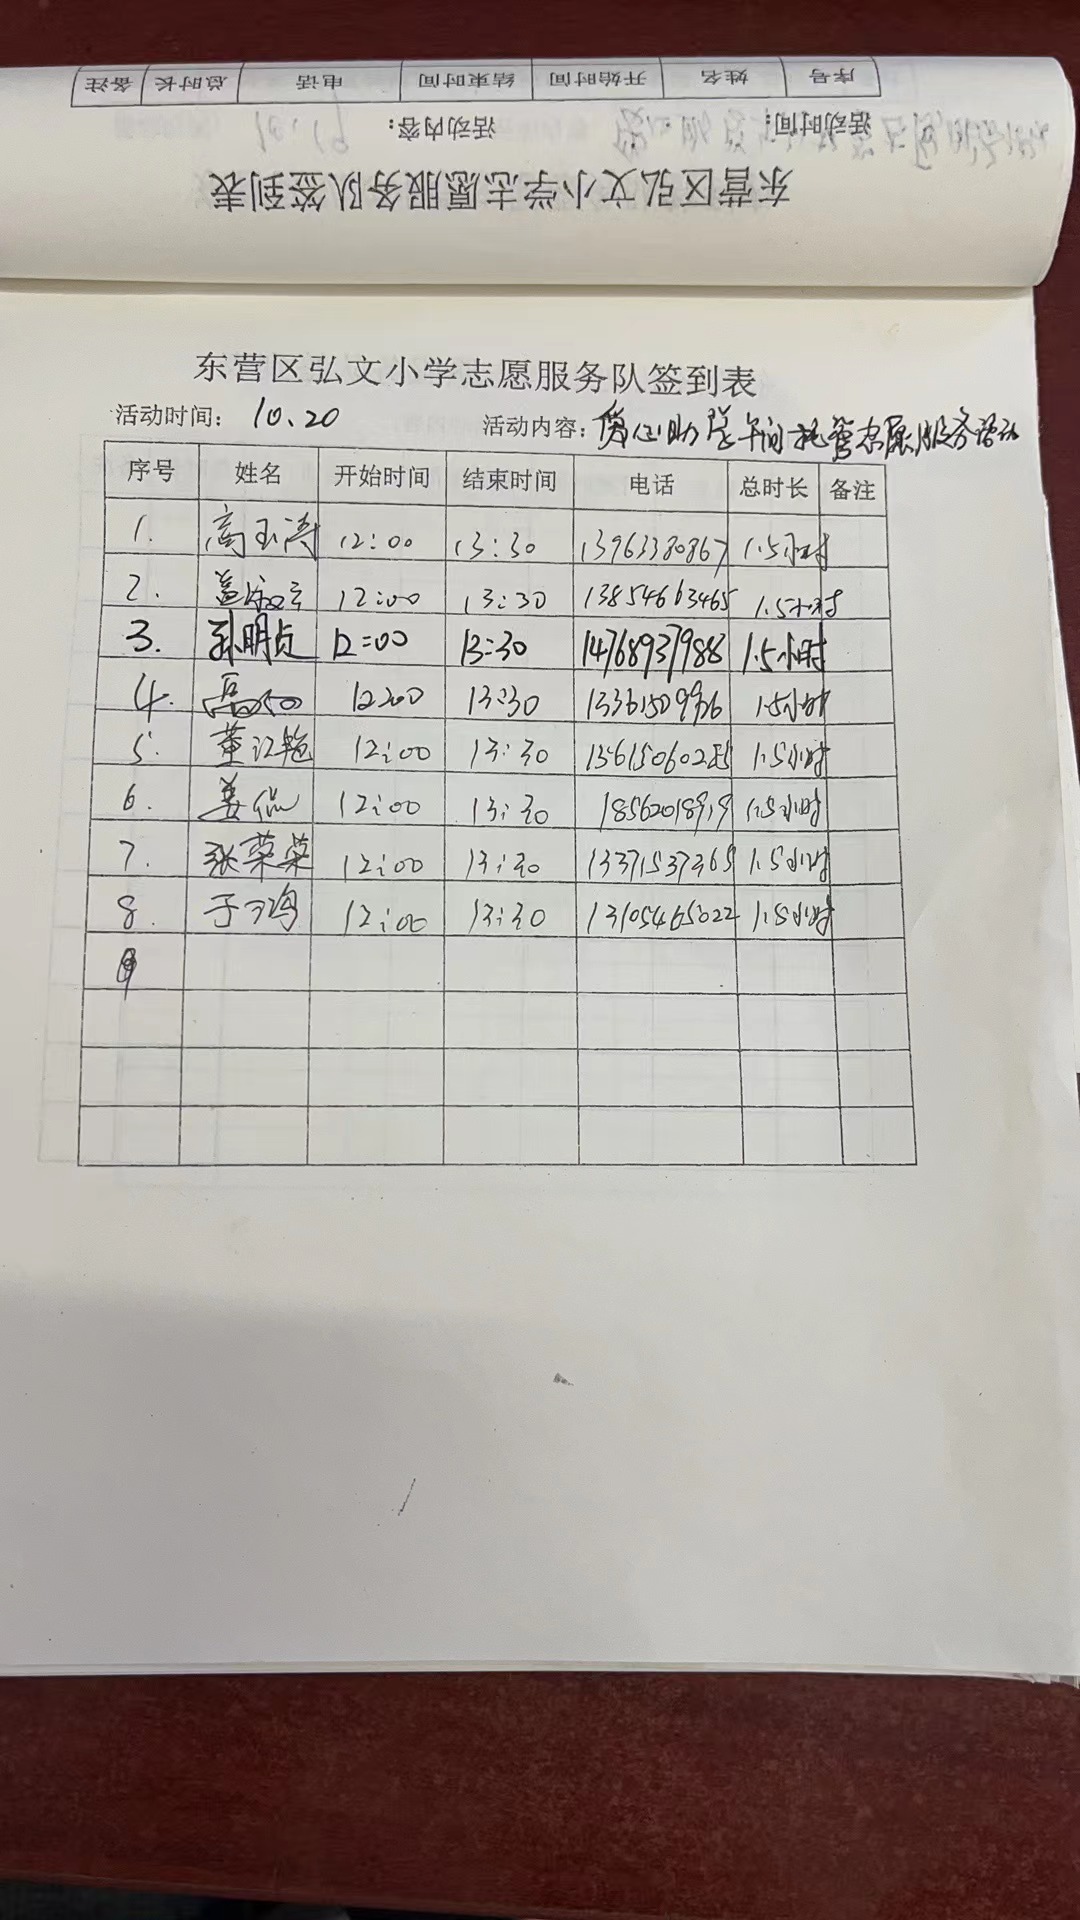 序号 姓名 开始时间 结束时间 电话 总时长 备注
活动时间: 10.19 活动内容:
东营区弘文小学志愿服务队签到表
东营区弘文小学志愿服务队签到表
活动时间: 10.20 活动内容: 爱心助学午间托管志愿服务活动
序号 姓名 开始时间 结束时间 电话 总时长 备注
1. 高玉涛 12:00 13:30 13963380867 1.5小时
2. 12:00 13:30 13854663465 1.5小时
3. 孙明贞 12:00 13:30 14768937988 1.5小时
4. 12:00 13:30 13361509936 1.5小时
5. 董江艳 12:00 13:30 1.5小时
6. 姜侃 12:00 13:30 18562018919 1.5小时
7. 张荣荣 12:00 13:30 13371537365 1.5小时
8. 于 12:00 13:30 13105465022 1.5小时